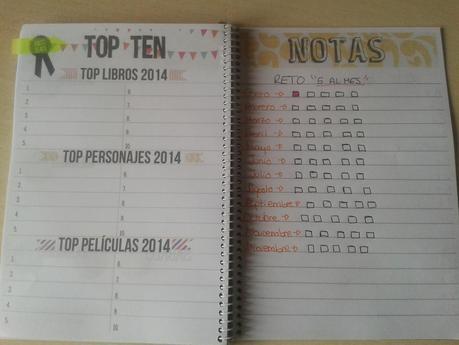 TOP TEN
TOP LIBROS 2014
1. 6.
2. 7.
3. 8.
4. 9.
5. 10.
TOP PERSONAJES 2014
1. 6.
2. 7.
3. 8.
4. 9.
5. 10.
TOP PELÍCULAS 2014
1. 6.
2. 7.
3. 8.
4. 9.
5. 10.
NOTAS
RETO "5 AL MES"
Enero
Febrero
Marzo
Abril
Mayo
Junio
Julio
Agosto
Septiembre
Octubre